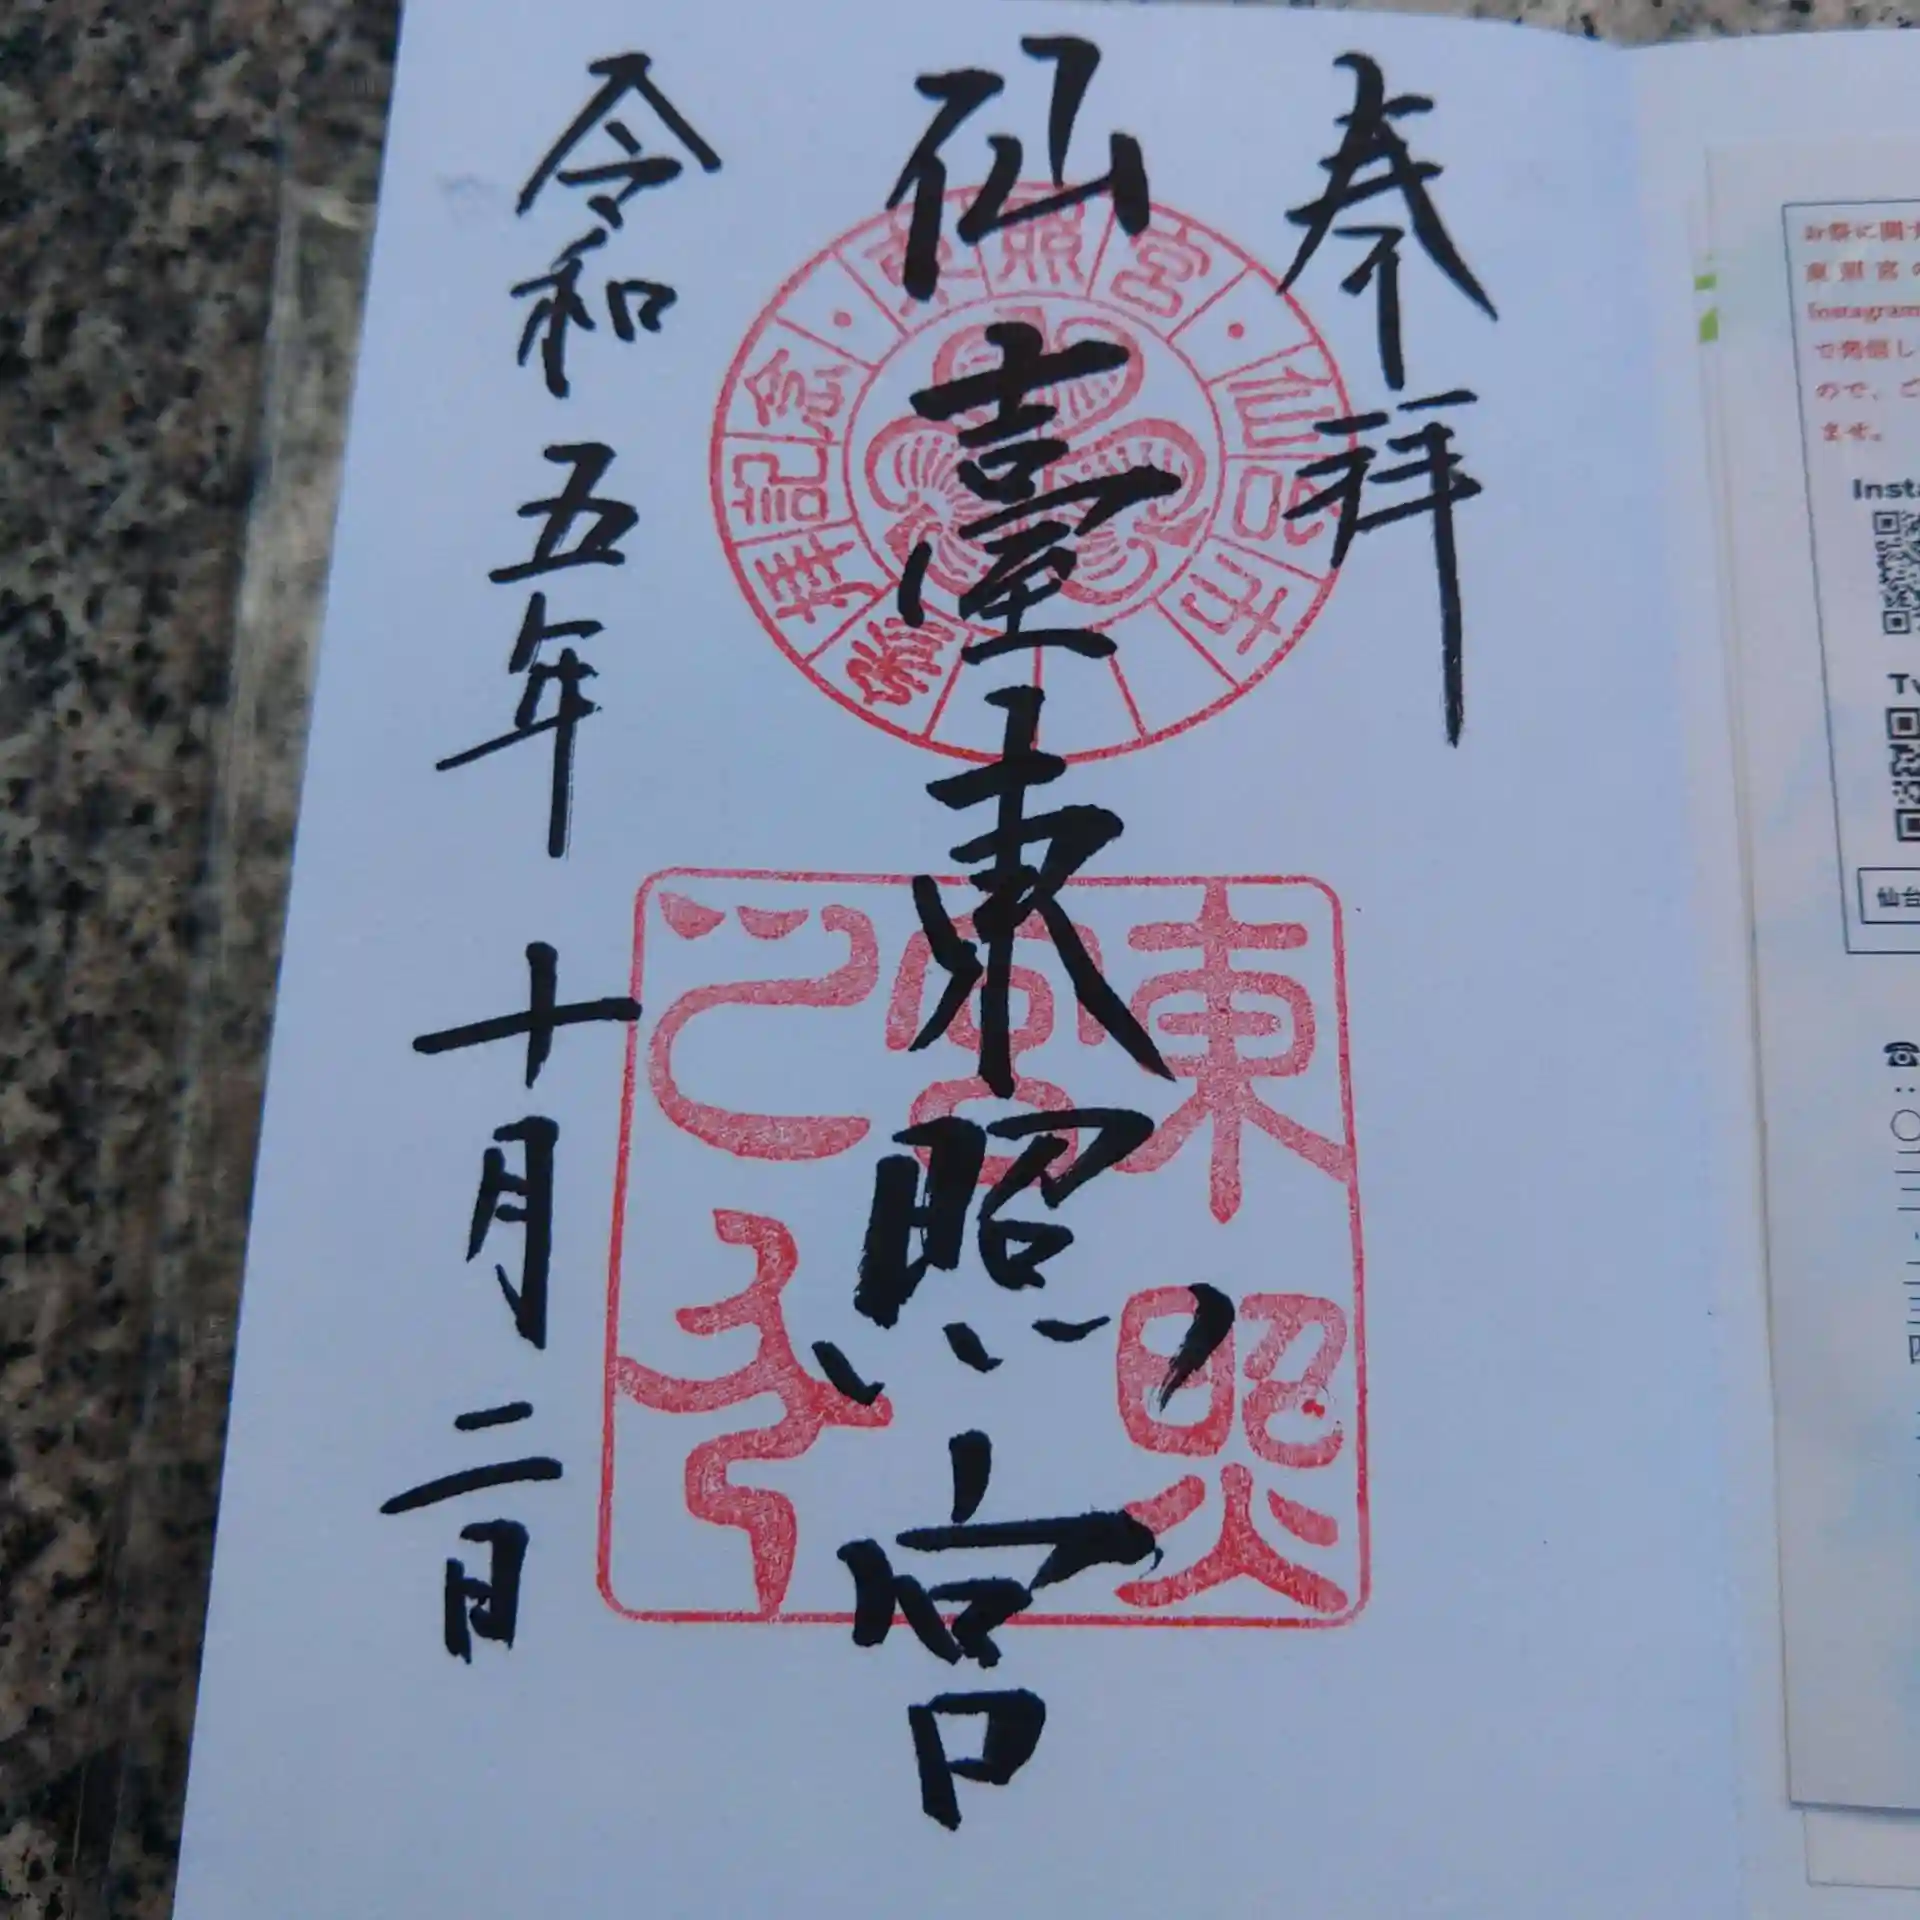 奉拝
仙臺東照宮
令和五年十月二日
東照宮
仙台市
参拝記念
東照
宮
之印
お祭に関す
東照宮の
Instagram
で発信し
ので、ご
ませ。
Inst
仙台